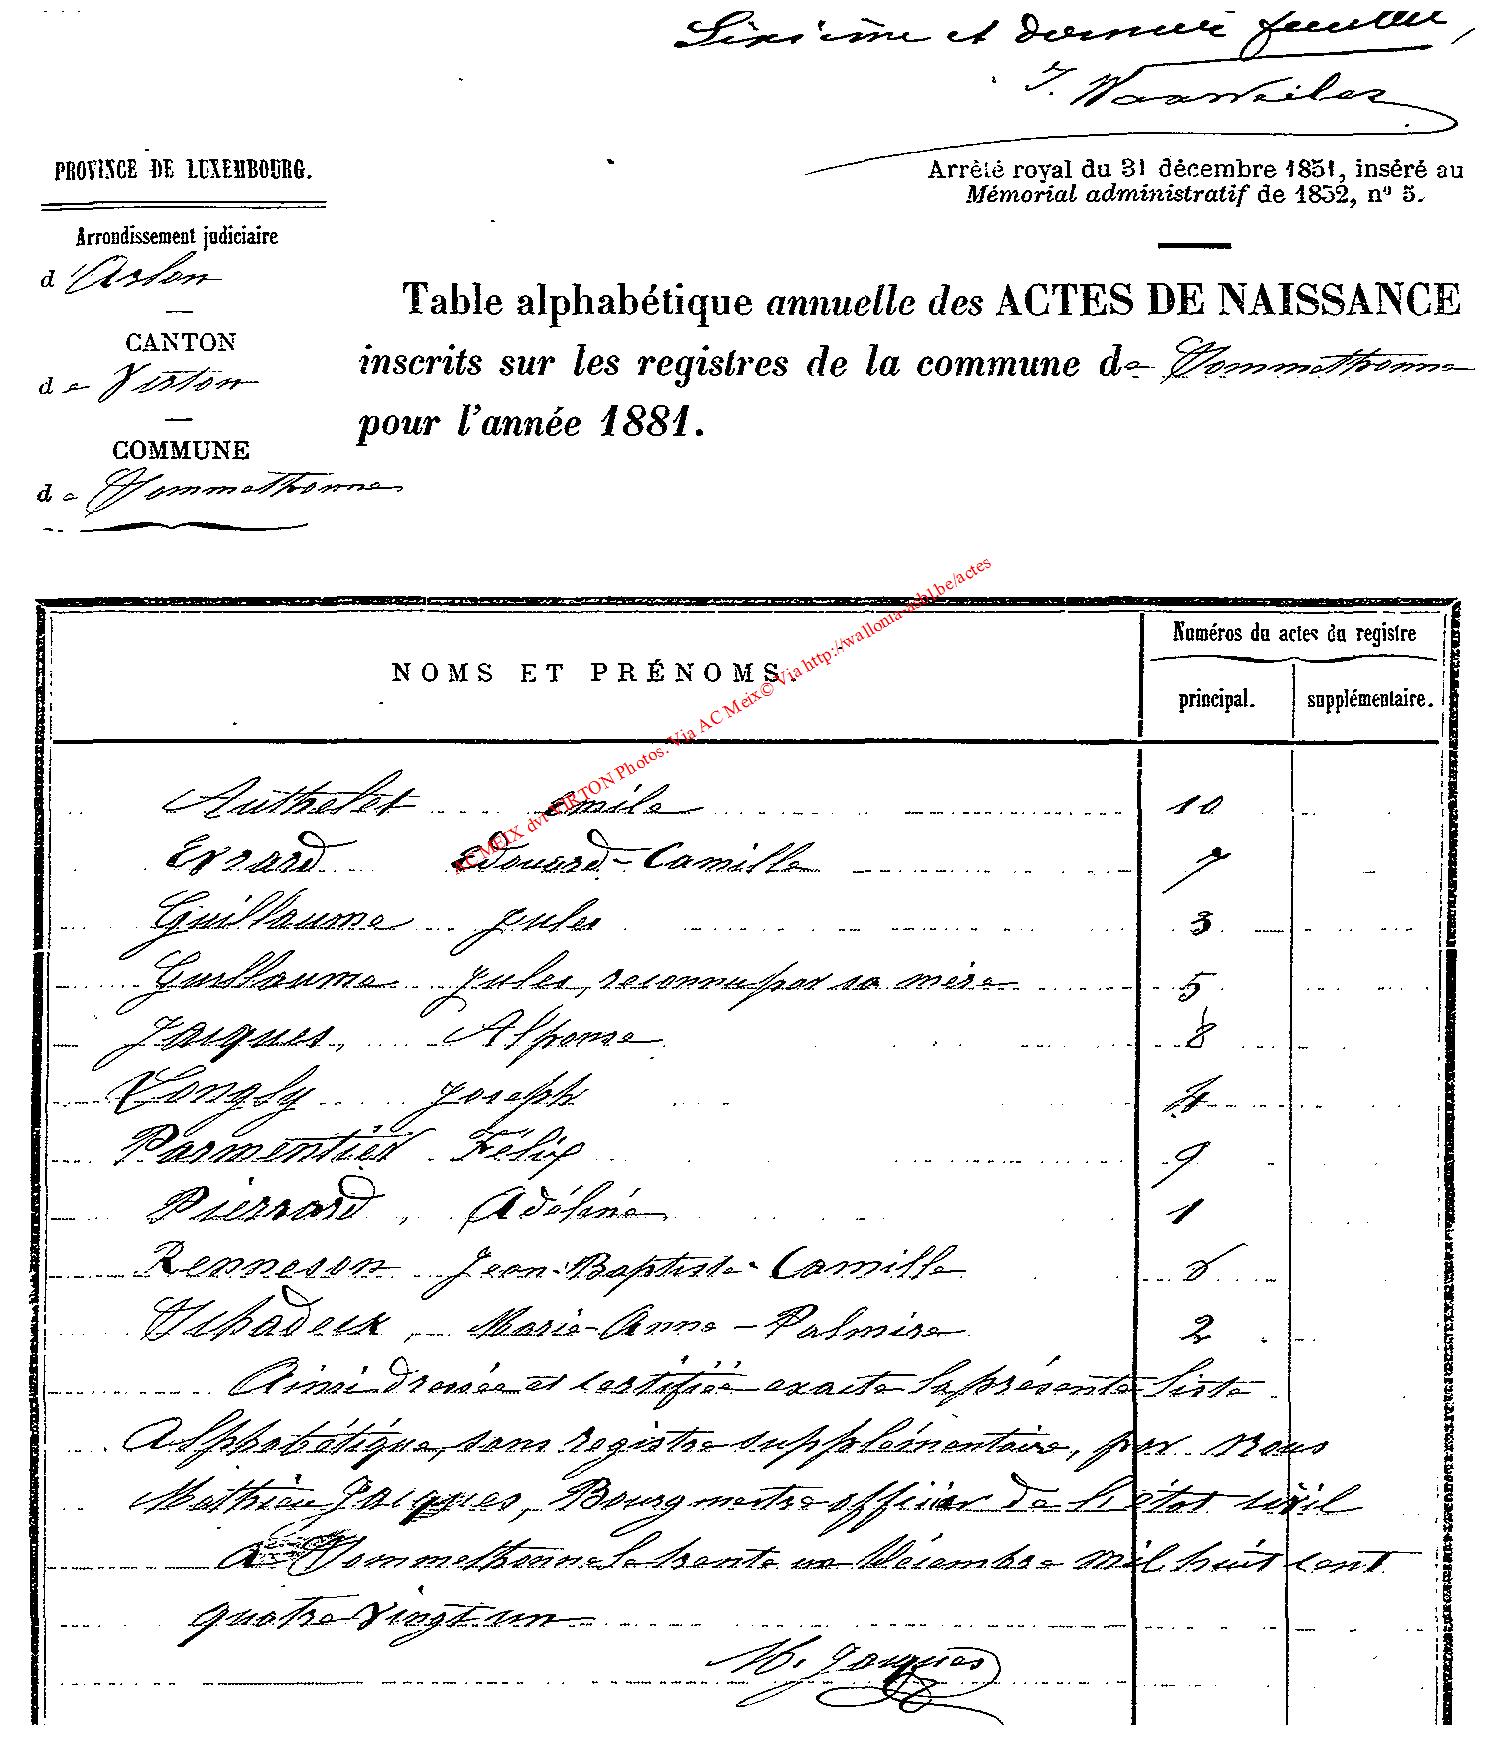 Sixième et dernier feuillet,
J. Wa
PROVINCE DE LUXEMBOURG.
Arrêté royal du 31 décembre 1851, inséré au
Mémorial administratif de 1852, nº 5.
Arrondissement judiciaire
d'Arlon
CANTON
de Virton
COMMUNE
de Sommethonne
Table alphabétique annuelle des ACTES DE NAISSANCE
inscrits sur les registres de la commune de Sommethonne
pour l'année 1881.
AC MEIX dvt VIRTON Photos. Via AC Meix© Via http://wallonia-asbl.be/actes
NOMS ET PRÉNOMS.
Numéros du actes du registre
principal. supplémentaire.
Authelet Emile 10
Evrard Edouard-Camille 7
Guillaume Jules 3
Guillaume Jules, reconnu par sa mère 5
Jacques, Alphonse 8
Longly Joseph 4
Parmentier Félix 9
Pierrard, Adéline 1
Renneson Jean-Baptiste-Camille
Marie-Anne-Palmire 2
Ainsi dressée et certifiée exacte la présente liste
Alphabétique, sans registre supplémentaire, par Nous
Mathieu Jacques, Bourgmestre officier de l'état civil
à Sommethonne le trente un Décembre mil huit cent
quatre vingt un
M. Jacques